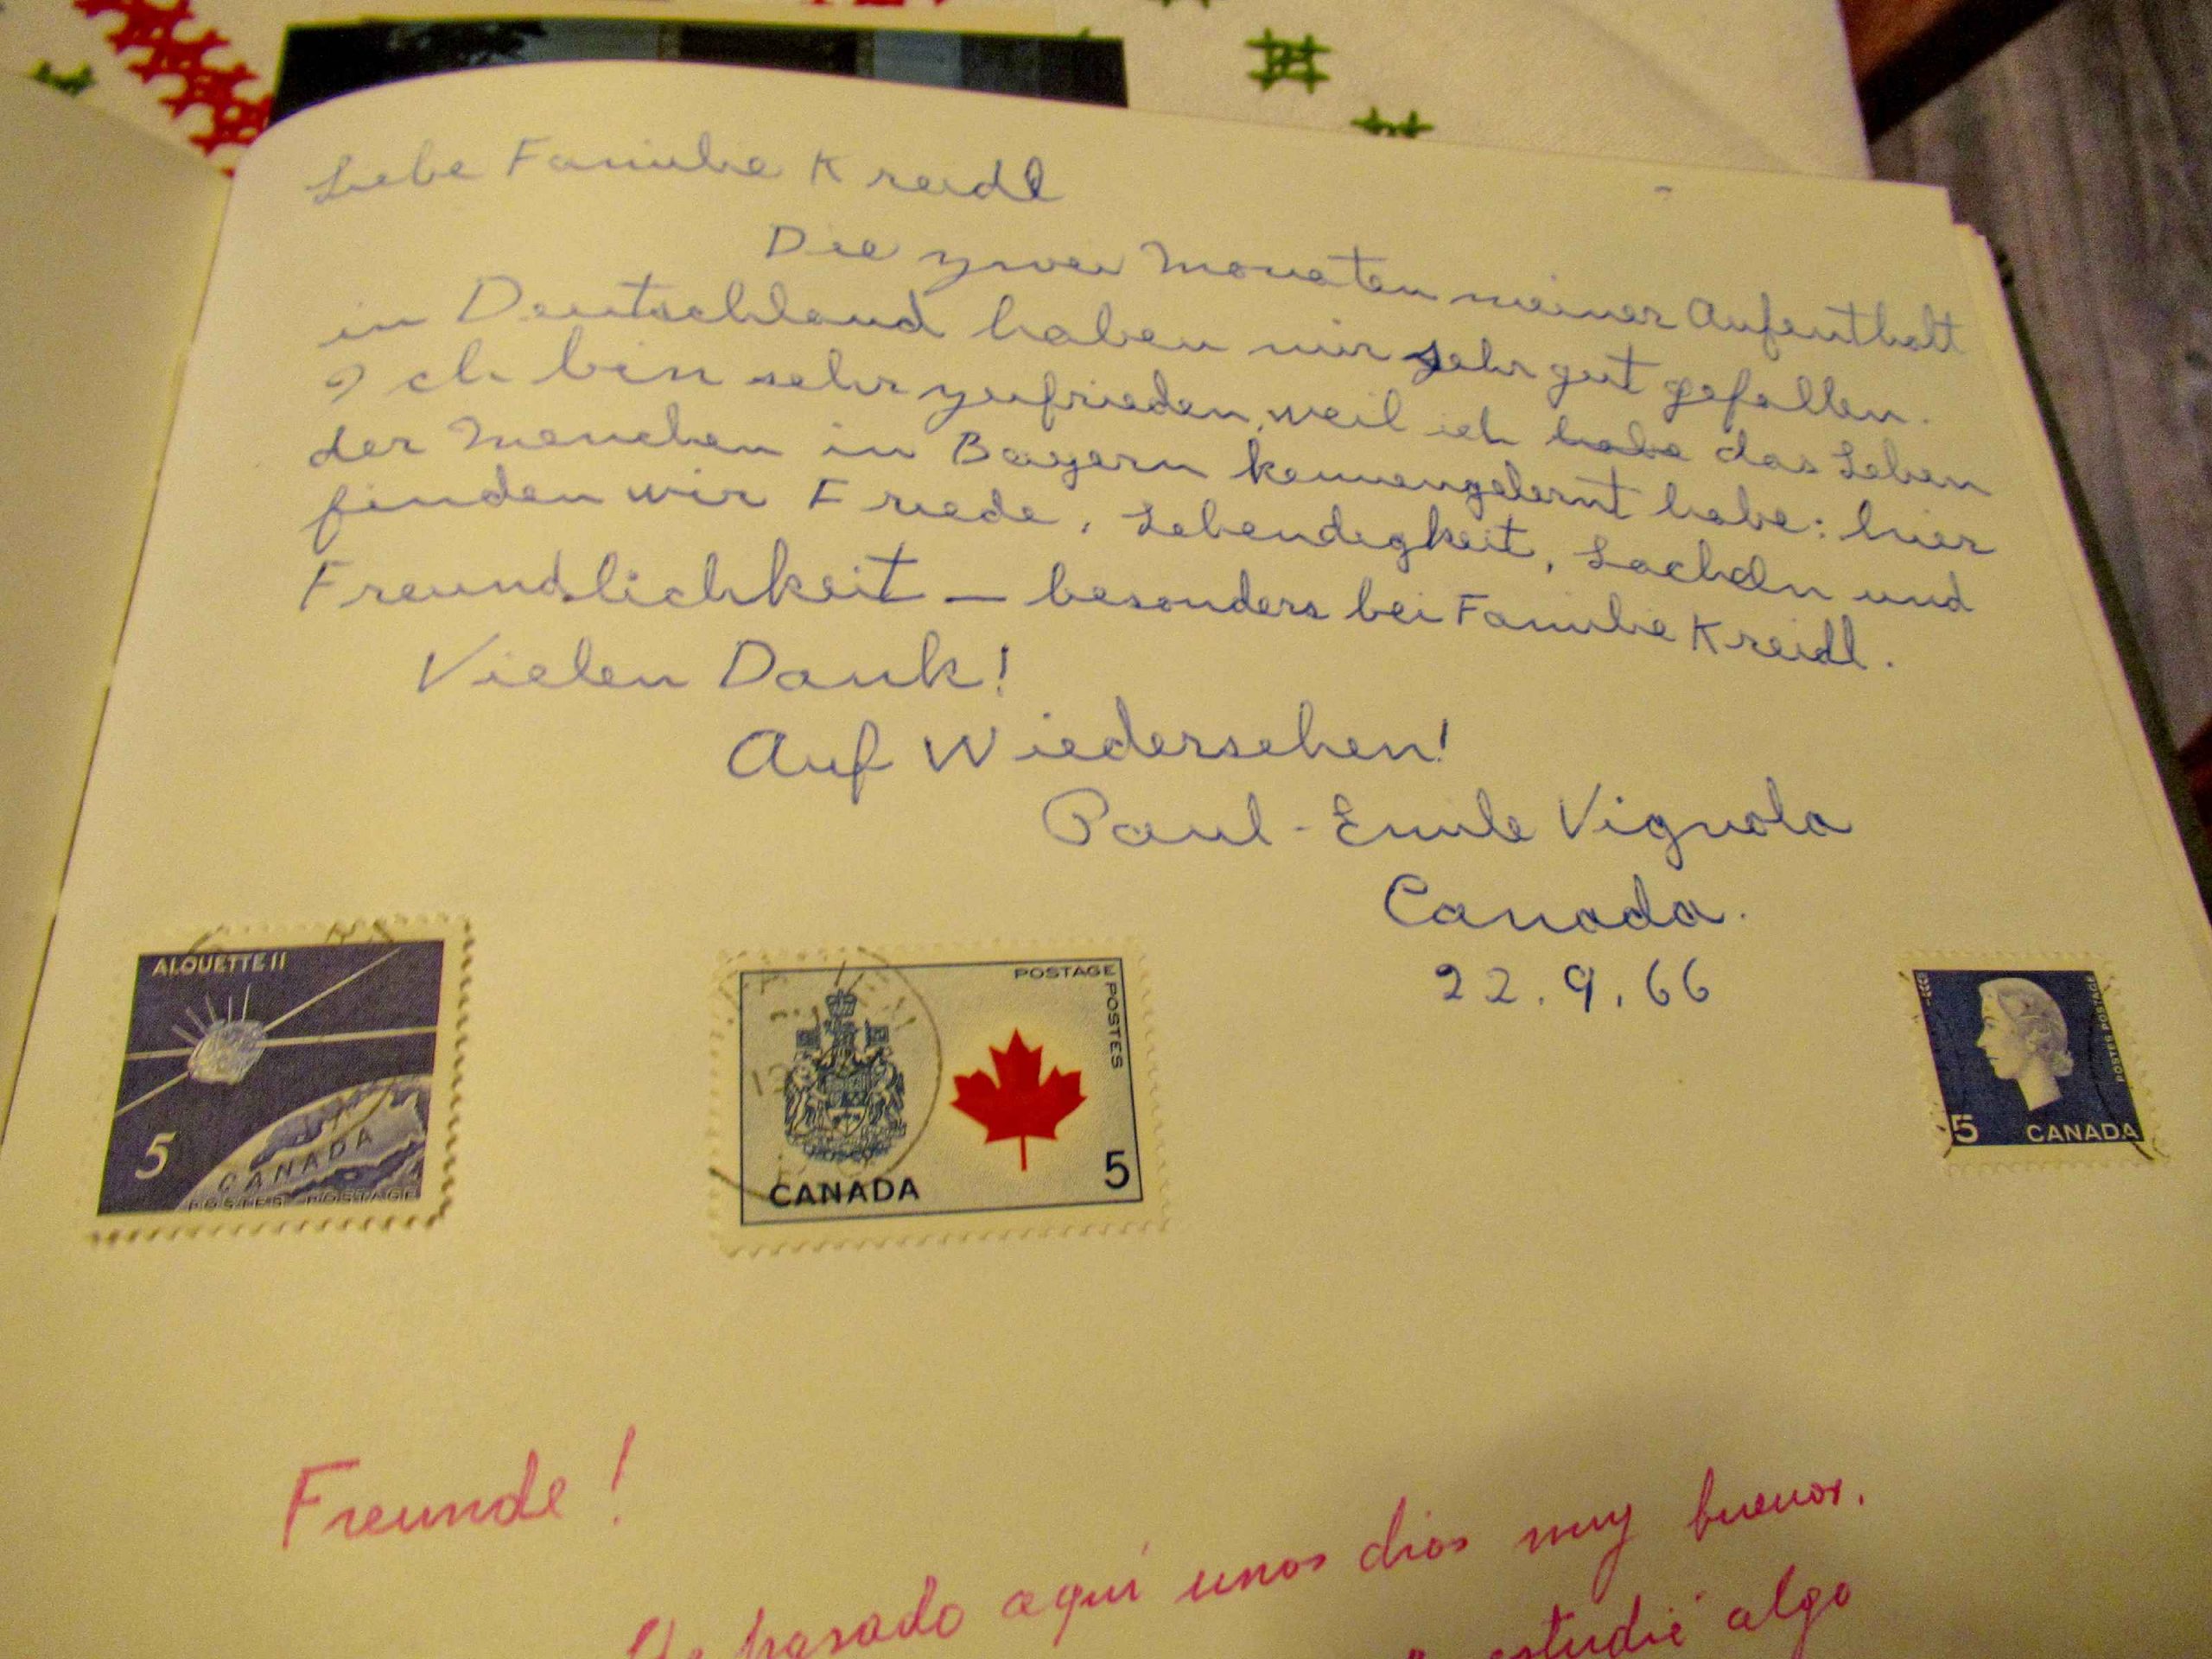 Liebe Familie Kreidl
Die zwei Monaten meiner Aufenthalt
in Deutschland haben mir sehr gut gefallen.
Ich bin sehr zufrieden, weil ich habe das Leben
der Menchen in Bayern kennengelernt habe: hier
finden wir Friede, Lebendigkeit, Lacheln und
Freundlichkeit — besonders bei Familie Kreidl.
Vielen Dank!
Auf Wiedersehen!
Paul-Emile Vignola
Canada.
22.9.66
ALOUETTE II
5
CANADA
POSTES POSTAGE
POSTAGE
POSTES
CANADA
5
POSTES POSTAGE
5 CANADA
Freunde!
He pasado aquí unos dias muy buenos.
estudié algo